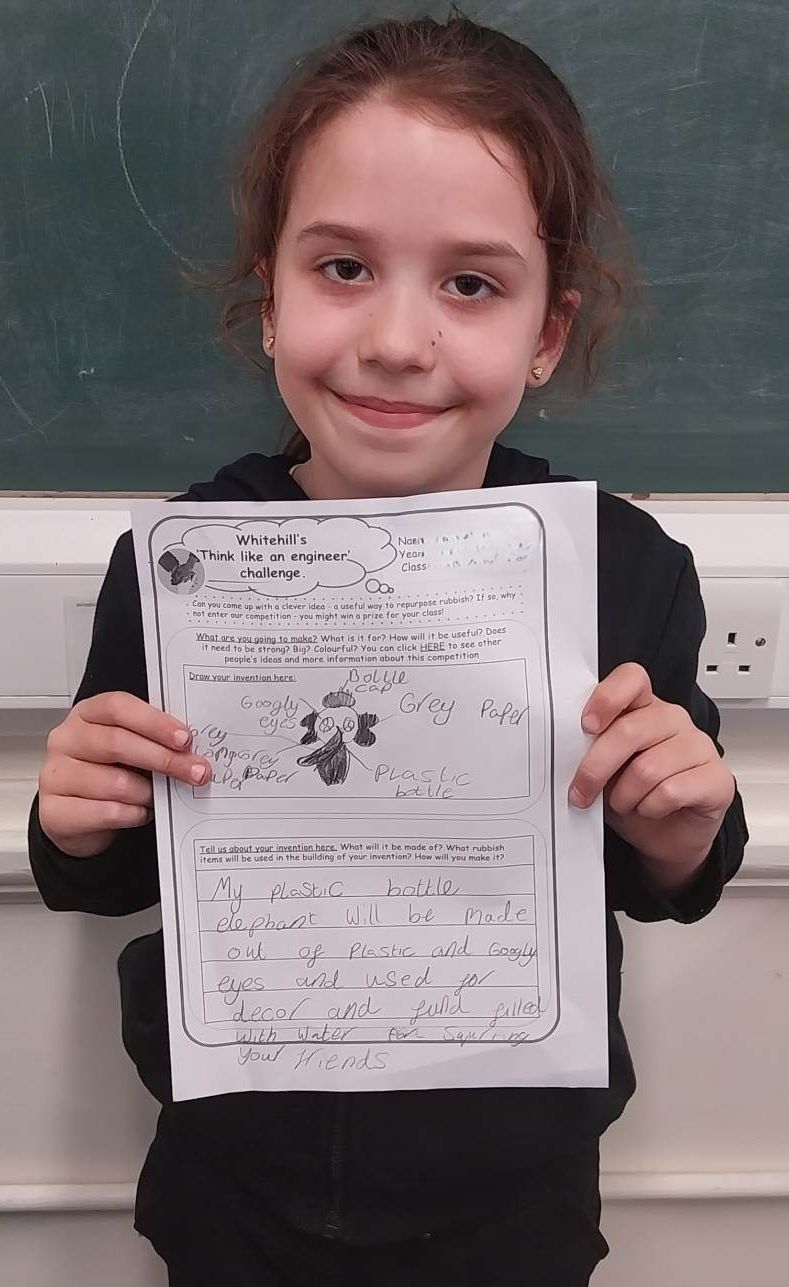 Whitehill's
'Think like an engineer'
challenge.
Name
Year
Class
Can you come up with a clever idea - a useful way to repurpose rubbish? If so, why
not enter our competition - you might win a prize for your class!
What are you going to make? What is it for? How will it be useful? Does
it need to be strong? Big? Colourful? You can click HERE to see other
people's ideas and more information about this competition
Draw your invention here:
Bottle
cap
Googly
eyes
Grey Paper
grey
Paper
Plastic
bottle
Tell us about your invention here. What will it be made of? What rubbish
items will be used in the building of your invention? How will you make it?
My plastic bottle
elephant will be made
out of plastic and Googly
eyes and used for
decor and filled
with water for
your friends